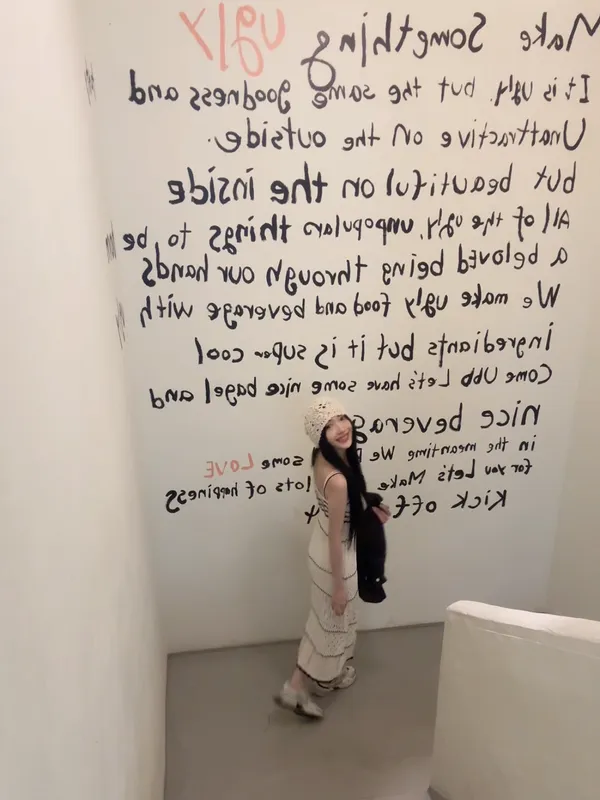 Make Something ugly
It is ugly, but the same goodness and
Unattractive on the outside.
but beautiful on the inside
All of the ugly, unpopular things to be
a beloved being through our hands
We make ugly food and beverage with
ingrediants but it is super cool
Come Ubb Let's have some nice bagel and
nice beverag
in the meantime We some LOVE
for you Let's Make lots of happiness
Kick off